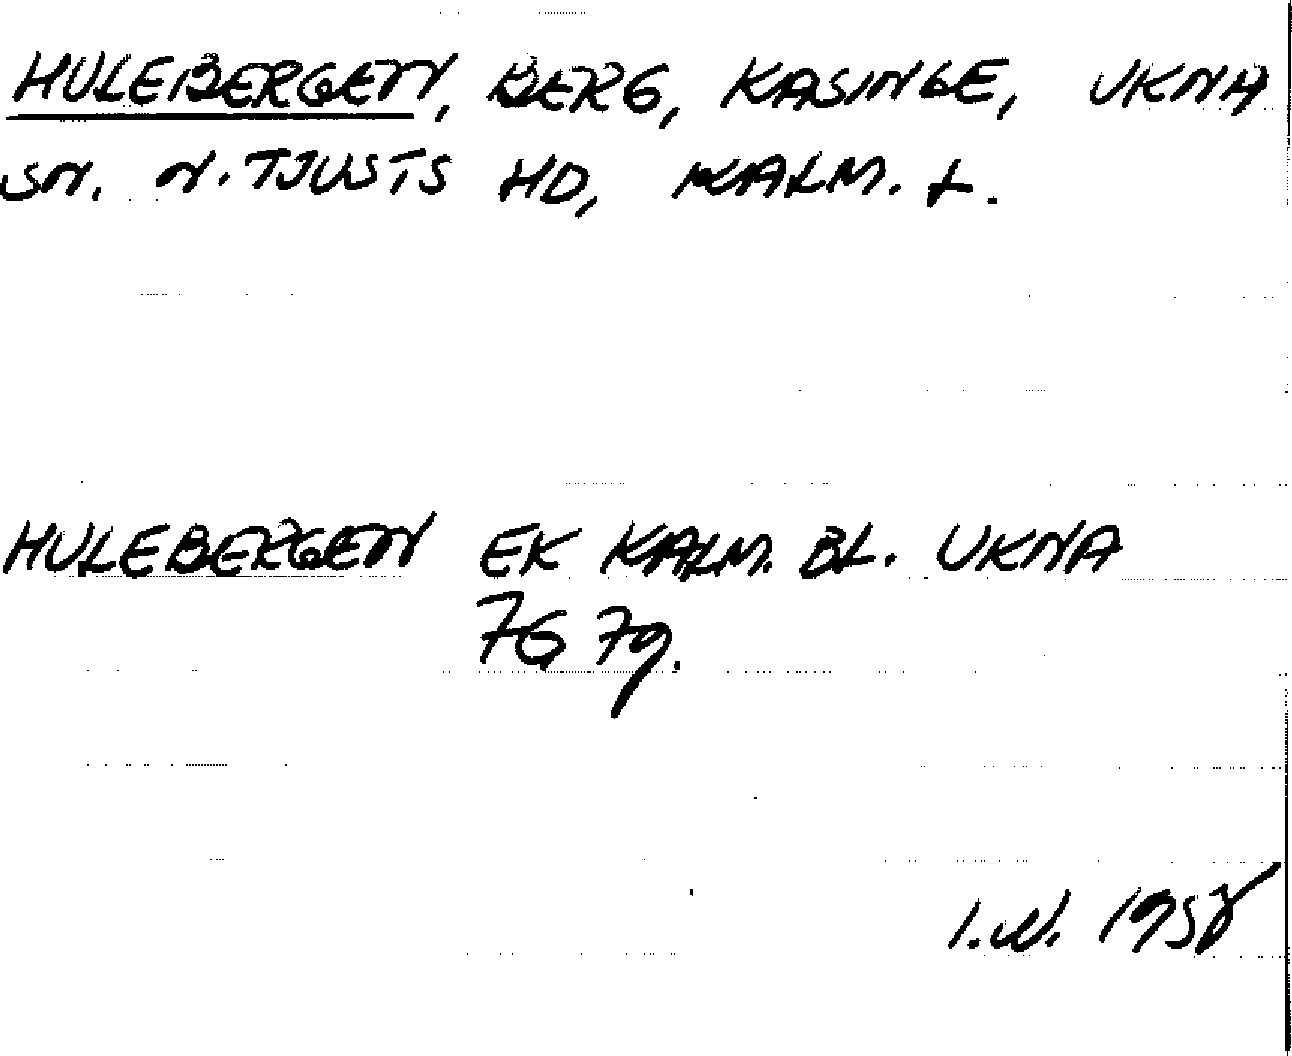 HULEBERGEN, BERG, KASINGE, UKNA
SN. N. TJUSTS HD, KALM. L.
HULEBERGEN EK KALM. BL. UKNA
7G 7g.
1958